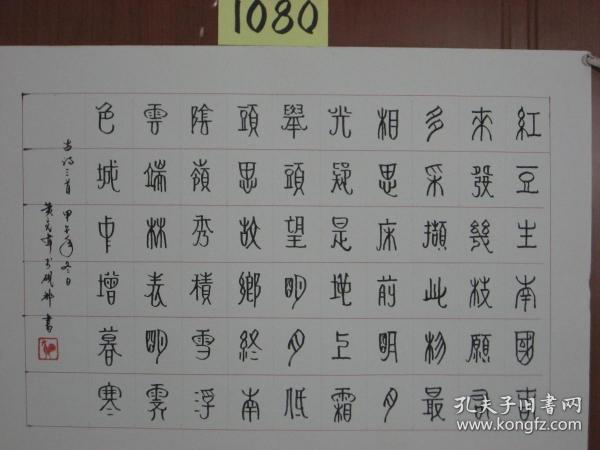 1080
紅豆生南國春
來發幾枝願君
多采擷此物最
相思床前明月
光疑是地上霜
舉頭望明月低
頭思故鄉終南
陰嶺秀積雪浮
雲端林表明霽
色城中增暮寒
古诗三首 甲午年冬日
黄 書
孔夫子旧書网
www.kongfz.com